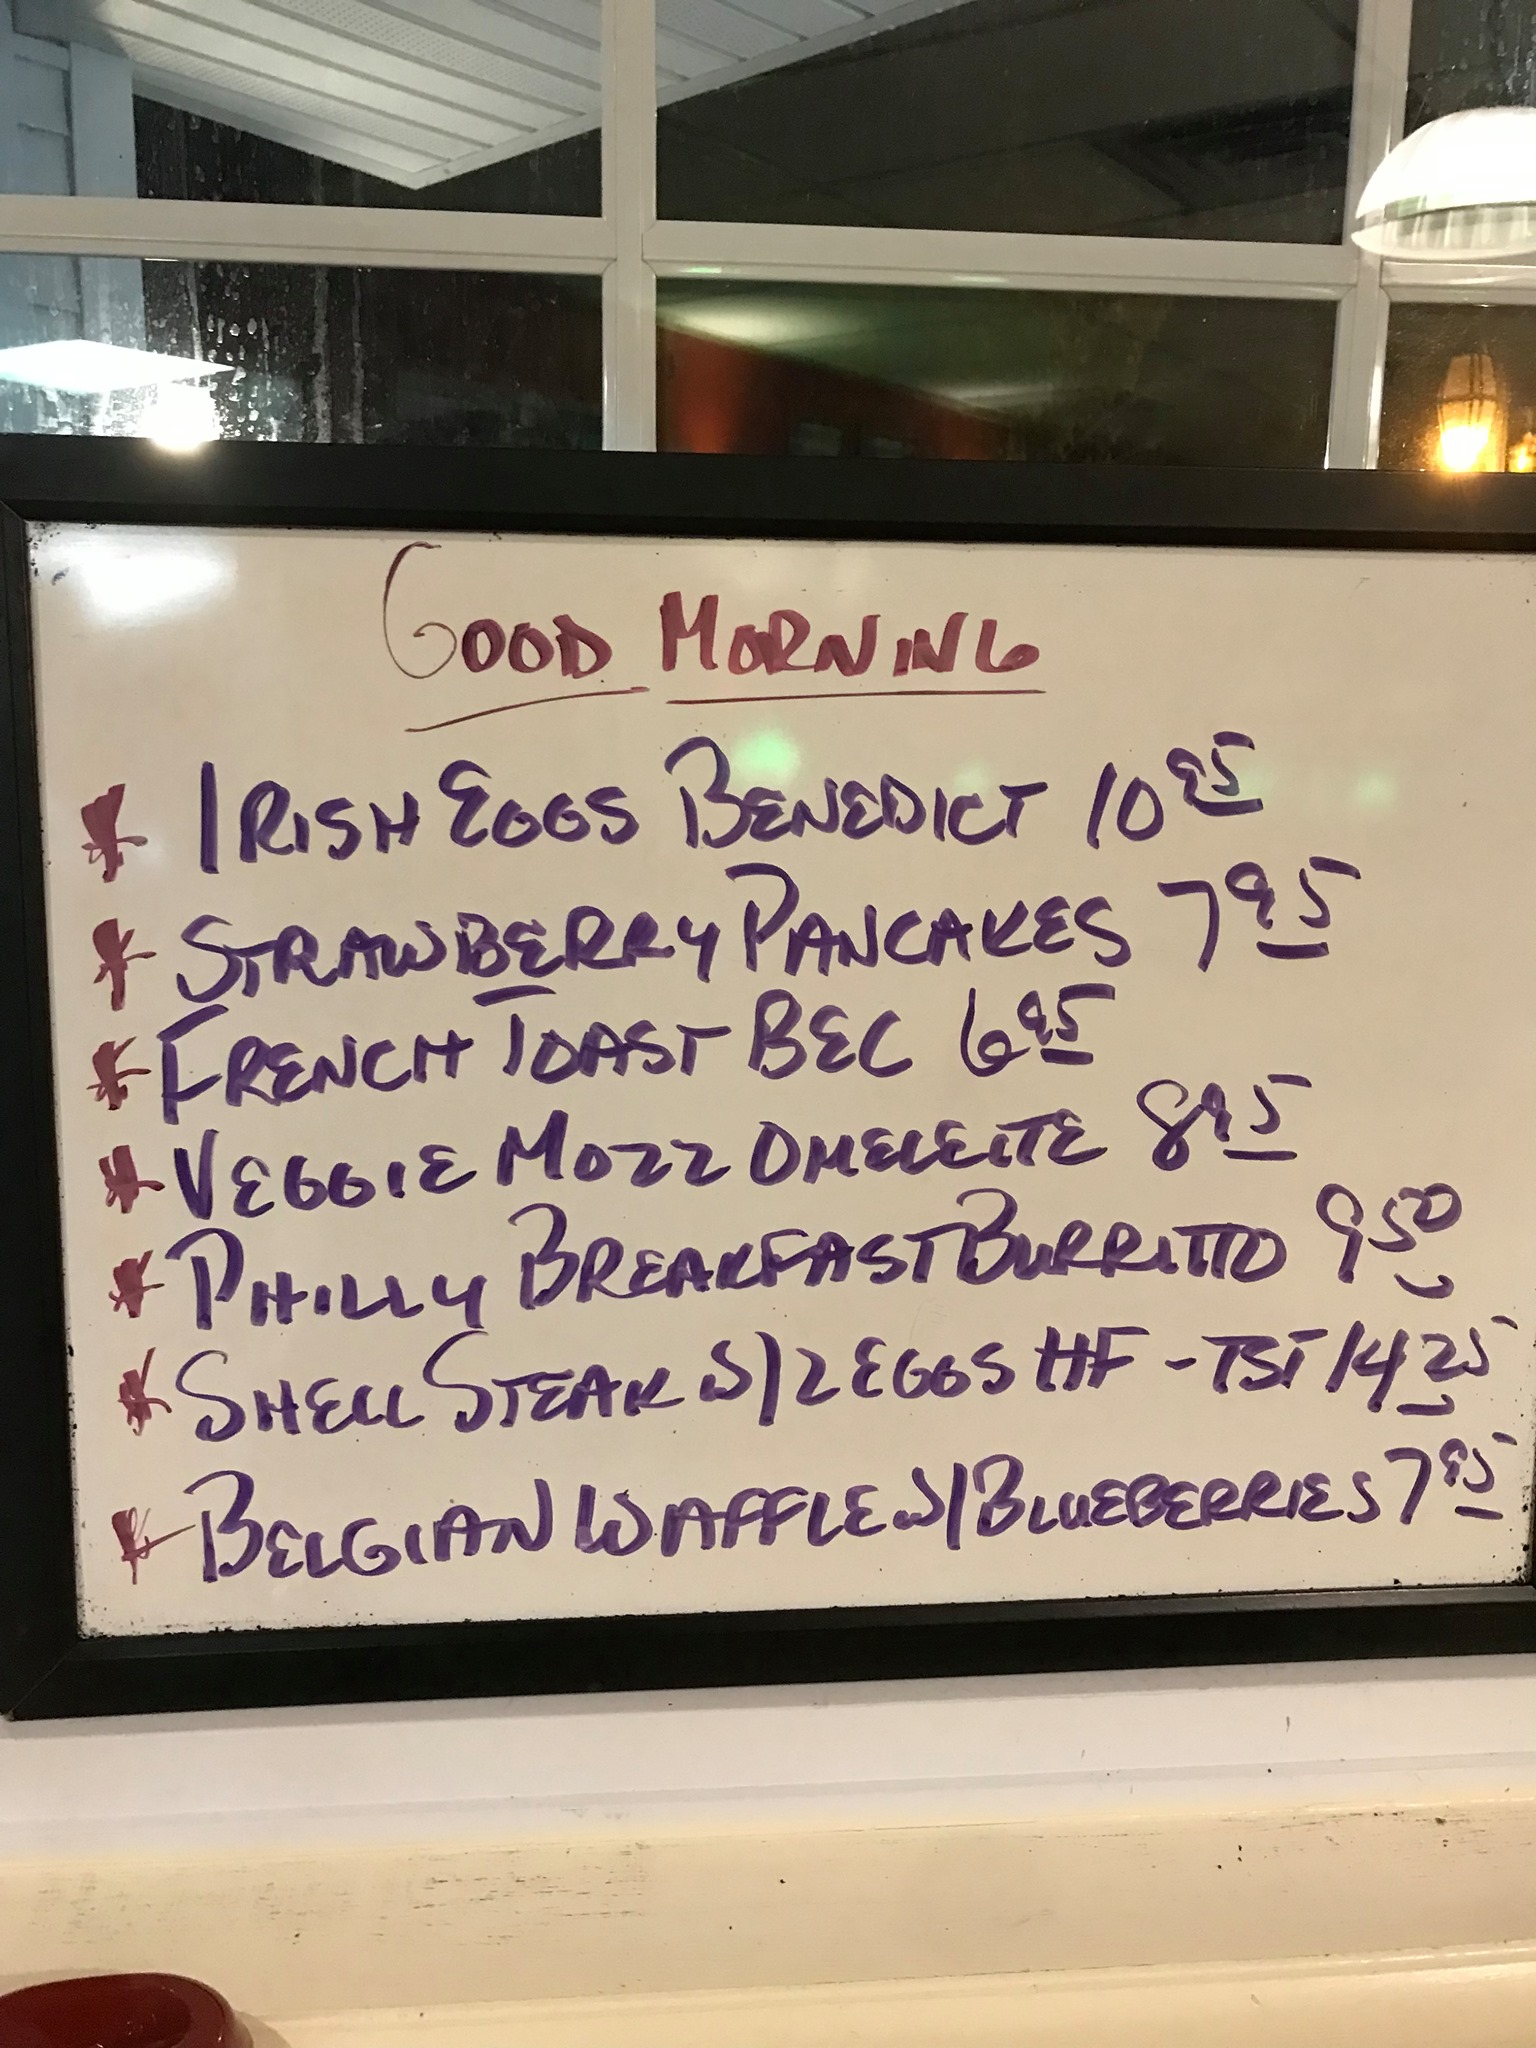 GOOD MORNING
* IRISH EGGS BENEDICT 10 95
* STRAWBERRY PANCAKES 7 95
* FRENCH TOAST BEC 6 95
* VEGGIE MOZZ OMELETTE 8 95
* PHILLY BREAKFAST BURRITTO 9 50
* SHELL STEAK W/ 2 EGGS HF - TST 14 25
* BELGIAN WAFFLE W/ BLUEBERRIES 7 95